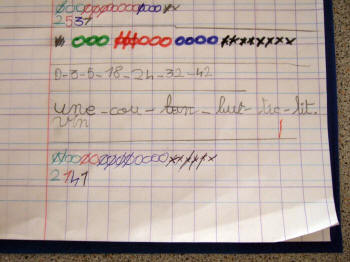 2531
0-3-5-18-24-32-42
une - cou - tan - lus - tic - lit.
un
2141